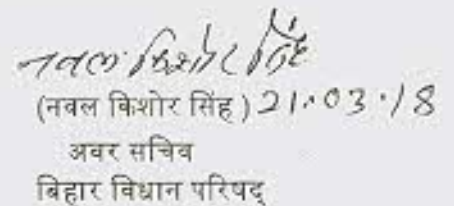 नवल किशोर सिंह
(नवल किशोर सिंह) 21.03.18
अवर सचिव
बिहार विधान परिषद्